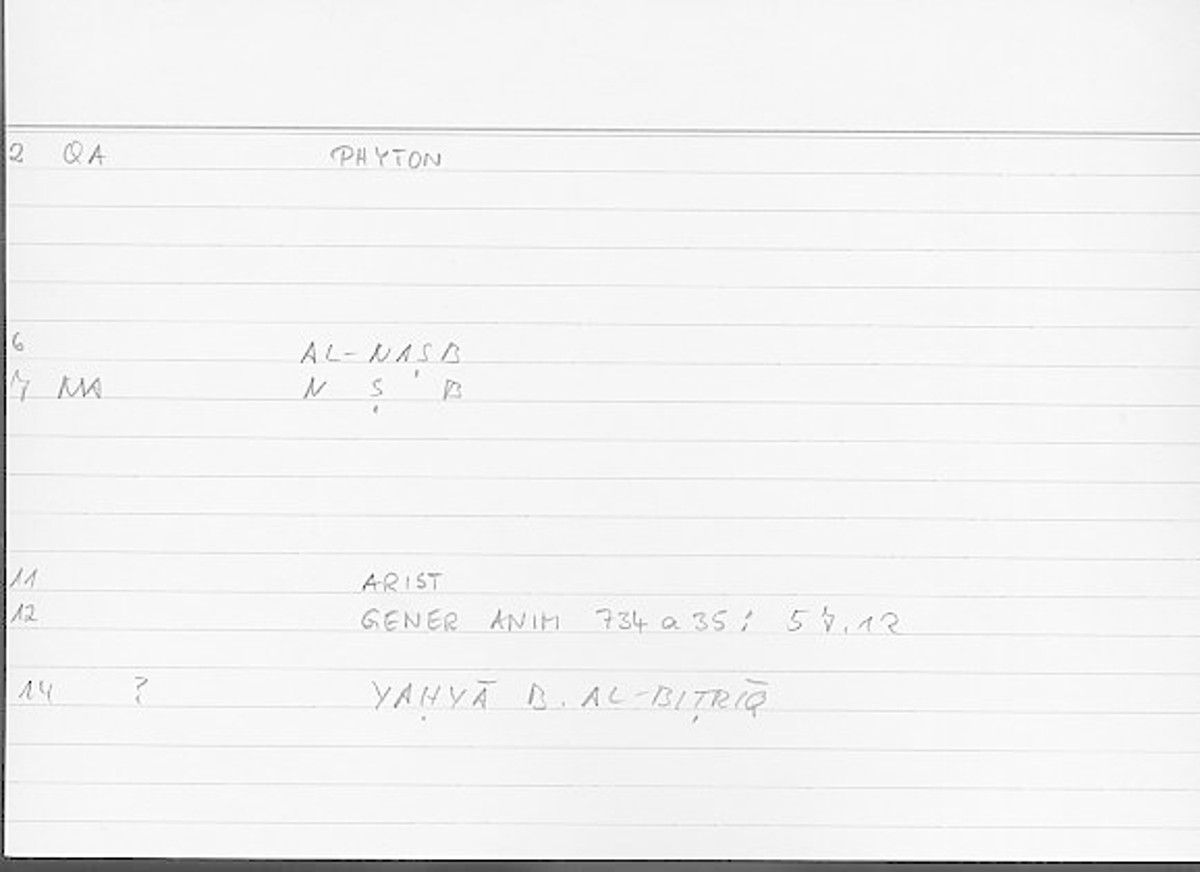 2 QA PHYTON
6 AL-NAṢB
7 MA N Ṣ B
11 ARIST
12 GENER ANIM 734 a 35; 57.12
14 ? YAḤYĀ B. AL-BIṬRĪQ